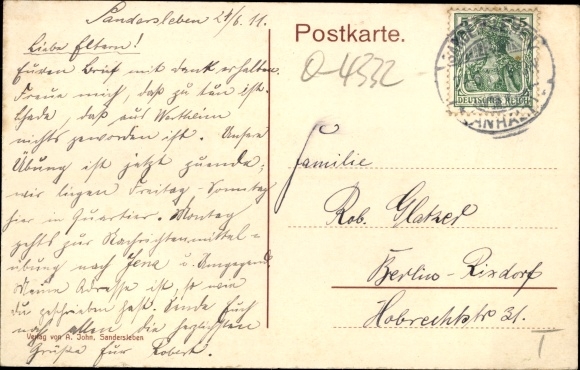 Sandersleben 21/6. 11.
Liebe Eltern!
Euren Brief mit dank erhalten.
Freue mich, daß zu tun ist.
Schade, daß aus Wertheim
nichts geworden ist. Unsere
Übung ist jetzt zuende,
wir liegen Freitag - Sonntag
hier in Quartier. Montag
gehts zur Nachrichtenmittel-
übung nach Jena u. Umgegend.
Meine Adresse ist, so wie
Du geschrieben hast. Sende Euch
noch allen, die herzlichsten
Grüße Euer Robert.
Verlag von A. John, Sandersleben
Postkarte.
O-4332
5 5
DEUTSCHES REICH
SANDERSLEBEN
(ANHALT)
Familie
Rob. Glatzer
Berlin-Rixdorf
Hobrechtstr. 31.
T